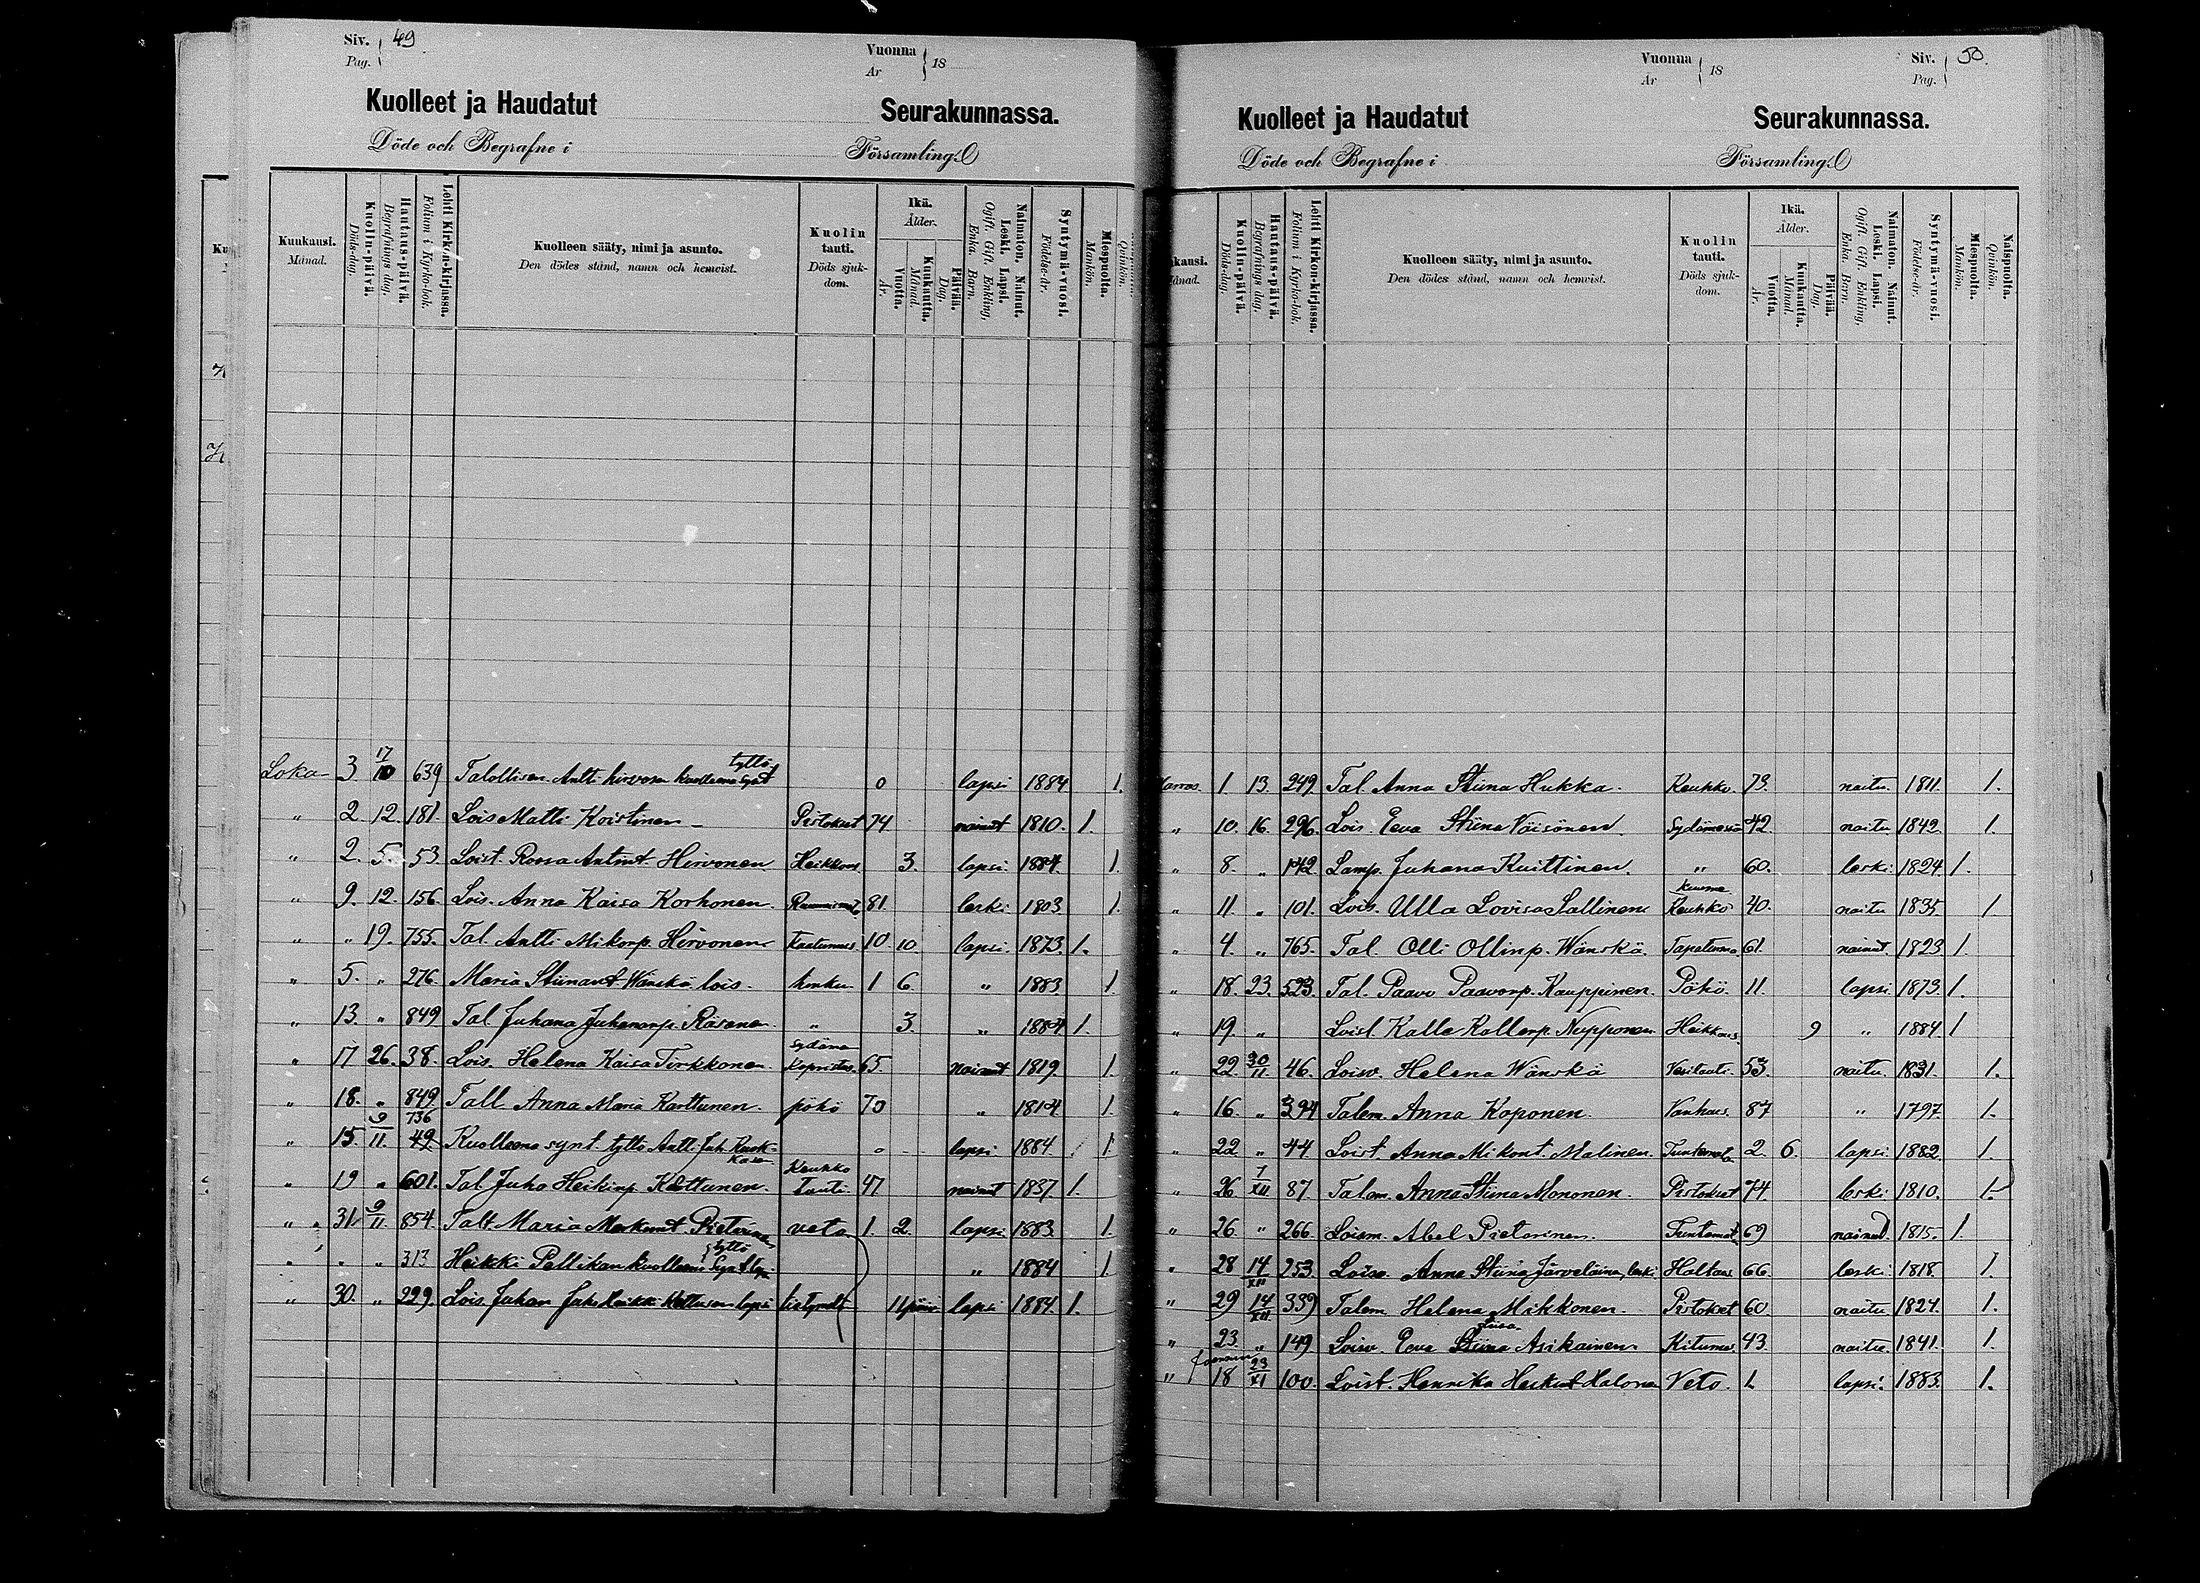 Siv. 49
Pag.
Vuonna 18
År
Kuolleet ja Haudatut Seurakunnassa.
Döde och Begrafne i Församling.
Kuukausi. Månad.
Kuolin-päivä. Döds-dag.
Hautaus-päivä. Begrafnings dag.
Lehti Kirkon-kirjassa. Folium i Kyrko-bok.
Kuolleen sääty, nimi ja asunto.
Den dödes stånd, namn och hemvist.
Kuolin tauti. Döds sjukdom.
Ikä. Ålder.
Vuotta. År.
Kuukautta. Månad.
Päivää. Dag.
Naimaton. Nainut. Leski. Lapsi.
Ogift. Gift. Enkling, Enka. Barn.
Syntymä-vuosi. Födelse-år.
Miespuolta. Mankön.
Quinkön.
Loka 3 17/10 639 Talollisen Antti hirvosen kuolleena synt tyttö 0 lapsi 1884 1.
" 2 12. 181. Lois Matti Koistinen Pistokset 74 nainut 1810. 1.
" 2. 5. 53. Loist. Roosa Antint. Hirvonen Heikkous 3. lapsi. 1884. 1.
" 9. 12. 156. Lois. Anna Kaisa Korhonen. 81. leski 1803. 1.
" " 19. 755. Tal. Antti Mikonp. Hirvonen Kaatumus 10 10. lapsi. 1873. 1.
" 5. " 276. Maria Stiinant Wänskä lois. hinku 1 6. " 1883. 1
" 13. " 849 Tal Juhana Juhananp. Räsänen " 3. " 1884 1.
" 17 26. 38. Lois. Helena Kaisa Tirkkonen. sydän 65. nainut 1819. 1.
" 18. " 849 Tall Anna Maria Karttunen. pökö 70 " 1814 1.
736
" 15 9/11. 49 Kuolleena synt. tyttö Antti Juh. lapsi 1884. 1
" 19 " 601. Tal. Juho Heikinp. Karttunen. Keuhko tauti. 47 nainut 1837. 1.
" " 31. 9/11. 854. Talt. Maria Markunt. Pietarinen veto 1. 2. lapsi 1883. 1.
" " " 313 Heikki Pellikan kuolleena synt tyttö " 1884 1.
" 30. " 229. Lois. Juhan Juho Heikki lapsi 11 päiv lapsi 1884. 1.
Vuonna 18
År
Siv. 50.
Pag.
Kuolleet ja Haudatut Seurakunnassa.
Döde och Begrafne i Församling.
kausi. ånad.
Kuolin-päivä. Döds-dag.
Hautaus-päivä. Begrafnings dag.
Lehti Kirkon-kirjassa. Folium i Kyrko-bok.
Kuolleen sääty, nimi ja asunto.
Den dödes stånd, namn och hemvist.
Kuolin tauti. Döds sjukdom.
Ikä. Ålder.
Vuotta. År.
Kuukautta. Månad.
Päivää. Dag.
Naimaton. Nainut. Leski. Lapsi.
Ogift. Gift. Enkling, Enka. Barn.
Syntymä-vuosi. Födelse-år.
Miespuolta. Mankön.
Naispuolta. Quinkön.
Marras. 1 13. 249. Tal. Anna Stiina Hukka. Keuhko. 73. naitu. 1811. 1.
" 10. 16. 296. Lois. Eeva Stiina Väisönen. 42 naitu 1842. 1.
" 8. " 142. Lamp. Juhana Kuittinen. " 60. leski. 1824. 1.
" 11. " 101. Lois. Ulla Lovisa Sallinen kuume Keuhko 40. naitu 1835 1.
" 4. " 765. Tal. Olli Ollinp. Wänskä. Tapaturma 61. nainut. 1823 1.
" 18. 23. 523. Tal. Paavo Paavonp. Kauppinen. Pökö. 11. lapsi 1873 1.
" 19. " Loisl Kalle Kallenp. Nupponen Heikkous. 9 " 1884. 1
" 22. 30/11 46. Loisv. Helena Wänskä Vesitauti. 53. naitu. 1831. 1.
" 16. " 394 Talem. Anna Koponen. Vanhuus. 87 " 1797. 1.
" 22. " 44. Loist. Anna Mikont. Malinen. Tuntemat. 2. 6. lapsi. 1882. 1.
" 26. 7/XII 87. Talem. Anna Stiina Mononen. Pistokset 74. leski. 1810. 1.
" 26. " 266. Loism. Abel Pietarinen. Tuntemat 69 nainut. 1815. 1.
" 28 14/XII 253. Loisv. Anna Stiina Järveläinen, leski Haltaus 66. leski. 1818. 1.
" 29 14/XII 339 Talem. Helena Mikkonen. Pistokset 60. naitu. 1824. 1.
" 23. " 149 Loisv. Eeva Stiina Liisa Asikainen. Kitumus. 43. naitu. 1841. 1.
" 18 23/XI 100. Loist. Henrika Heikint Halonen Veto. 1. lapsi. 1883. 1.